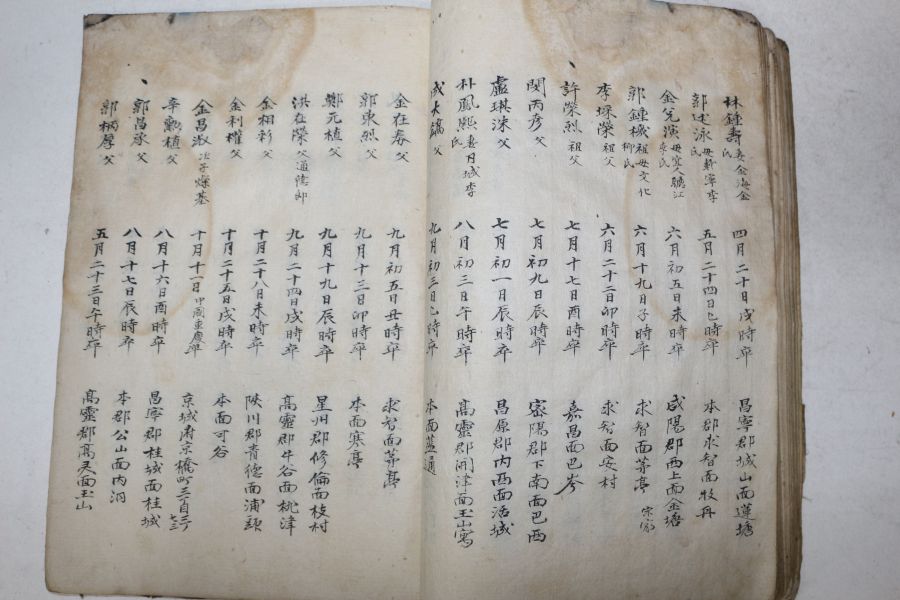 林鍾壽 妻金海金氏 四月二十日戌時卒 昌寧郡城山面蓮塘
郭述泳 母載寧李氏 五月二十四日巳時卒 本郡求智面牧丹
金演 母宜人 氏 六月初五日未時卒 咸陽郡西上面金塘
郭鍾 祖母文化柳氏 六月十九日子時卒 求智面茅亭 宗家
李琛榮 祖父 六月二十二日卯時卒 求智面安村
許榮烈 祖父 七月十七日酉時卒 嘉昌面巴岑
閔丙彦 父 七月初九日辰時卒 密陽郡下南面巴西
盧琪洙 父 七月初一日辰時卒 昌原郡內西面活城
朴鳳熙 妻月城李氏 八月初三日午時卒 高靈郡開津面玉山
成大鎬 父 九月初三日巳時卒 本面藍通
金在春 父 九月初五日丑時卒 求智面茅亭
郭東烈 父 九月十三日卯時卒 本面寒亭
鄭元植 父 九月十九日辰時卒 星州郡修倫面枝村
洪在榮 父通德郎 九月二十四日戌時卒 高靈郡牛谷面桃津
金相彩 父 十月二十八日未時卒 陜川郡靑德面浦頭
金利權 父 十月二十五日戌時卒 本面可谷
金昌淑 次子燦基 十月十一日中國重慶卒 京城府京橋町三百
辛植 父 八月十六日酉時卒 昌寧郡桂城面桂城
郭昌承 父 八月十七日辰時卒 本郡公山面內洞
郭柄厚 父 五月二十三日午時卒 高靈郡高灵面玉山